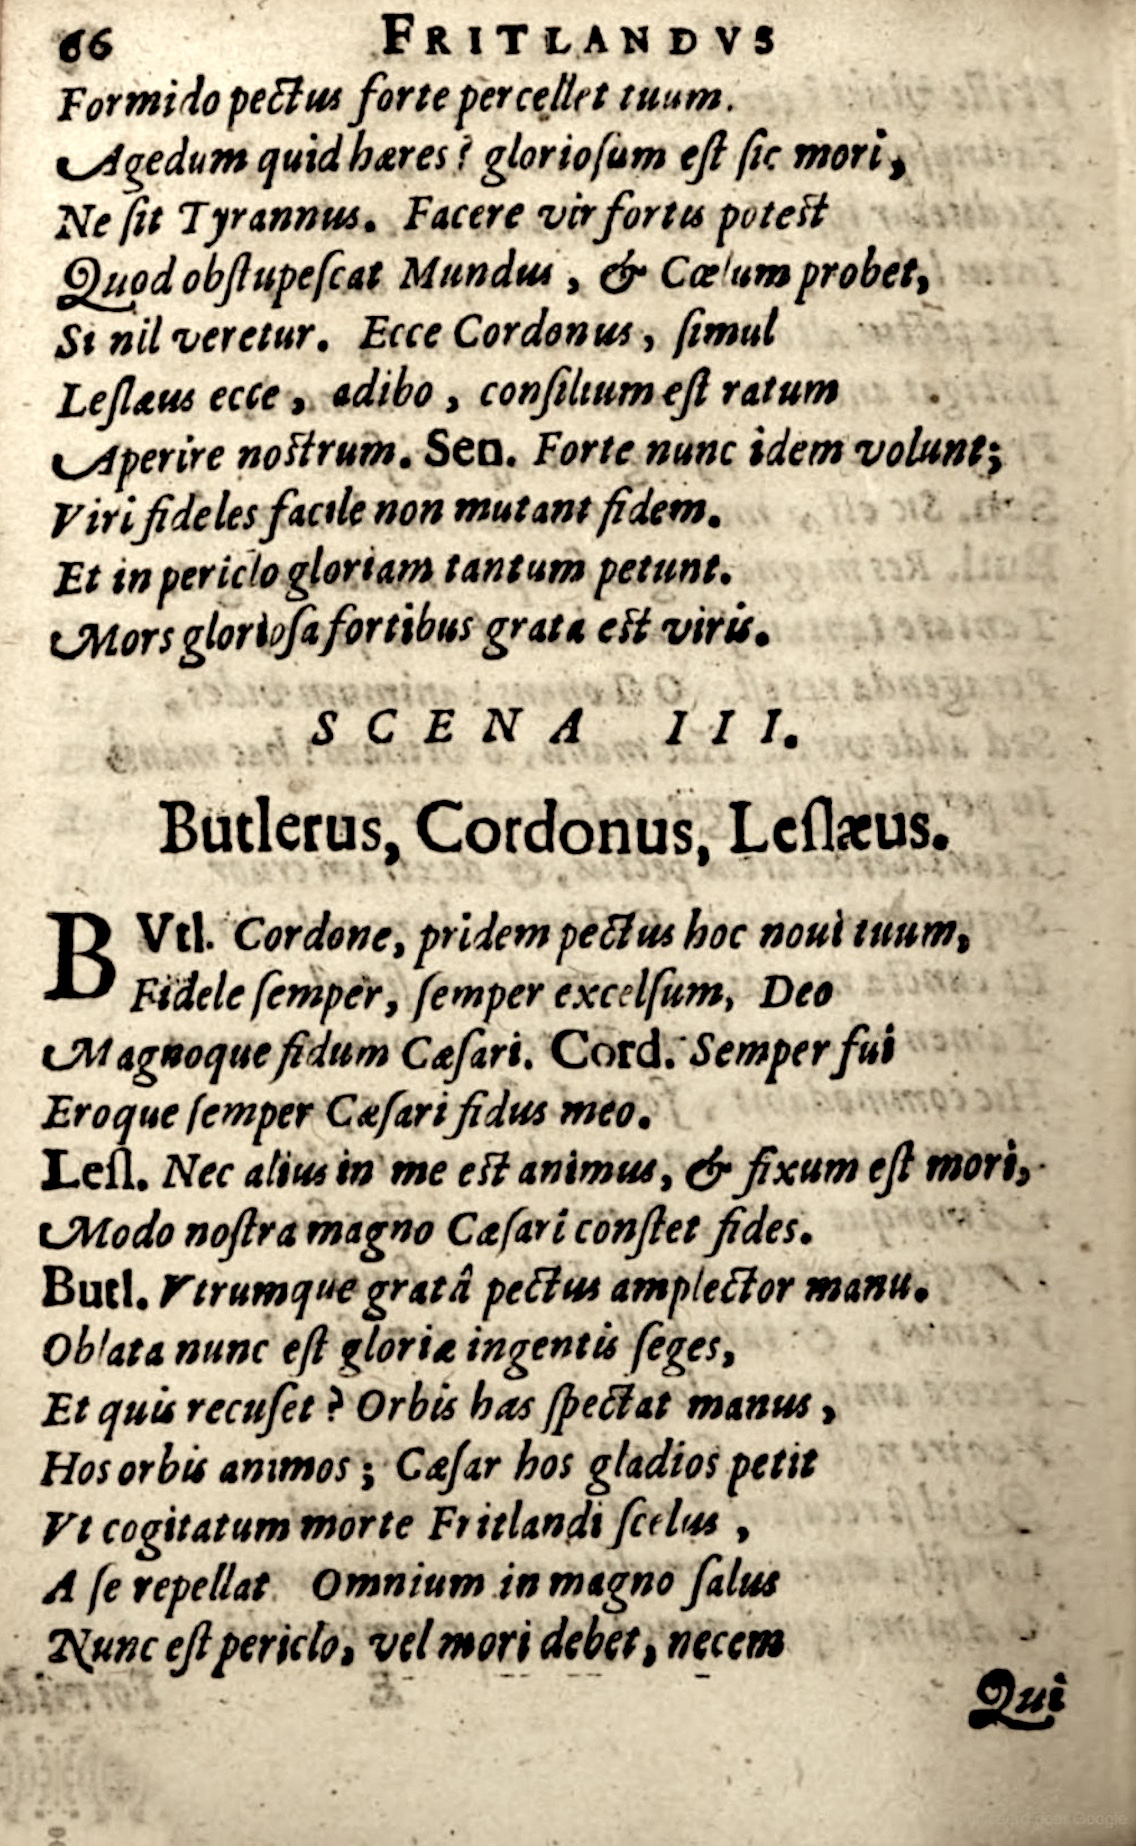 66 FRITLANDVS
Formido pectus forte percellet tuum.
Agedum quid hæres? gloriosum est sic mori,
Ne sit Tyrannus. Facere vir fortis potest
Quod obstupescat Mundus, & Cœlum probet,
Si nil veretur. Ecce Cordonus, simul
Leslæus ecce, adibo, consilium est ratum
Aperire nostrum. Sen. Forte nunc idem volunt;
Viri fideles facile non mutant fidem.
Et in periclo gloriam tantum petunt.
Mors gloriosa fortibus grata est viris.
SCENA III.
Butlerus, Cordonus, Leslæus.
BVtl. Cordone, pridem pectus hoc noui tuum,
Fidele semper, semper excelsum, Deo
Magnoque fidum Cæsari. Cord. Semper fui
Eroque semper Cæsari fidus meo.
Lesl. Nec alius in me est animus, & fixum est mori,
Modo nostra magno Cæsari constet fides.
Butl. Vtrumque gratâ pectus amplector manu.
Oblata nunc est gloriæ ingentis seges,
Et quis recuset? Orbis has spectat manus,
Hos orbis animos; Cæsar hos gladios petit
Vt cogitatum morte Fritlandi scelus,
A se repellat. Omnium in magno salus
Nunc est periclo, vel mori debet, necem
Qui